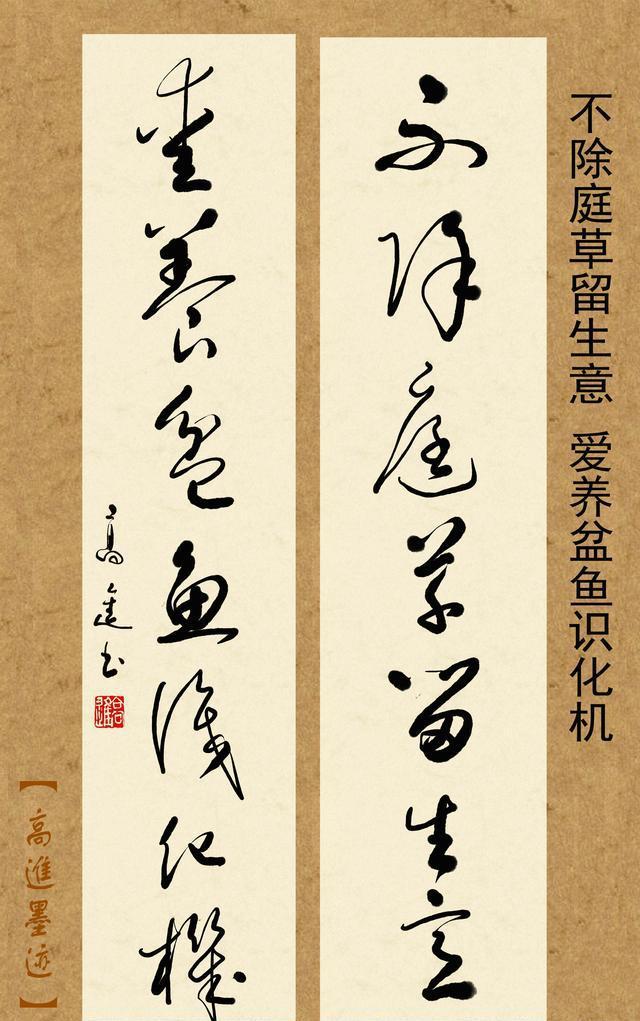 不除庭草留生意 爱养盆鱼识化机
不除庭草留生意
爱养盆鱼识化机
高進书
高進
【高進墨迹】